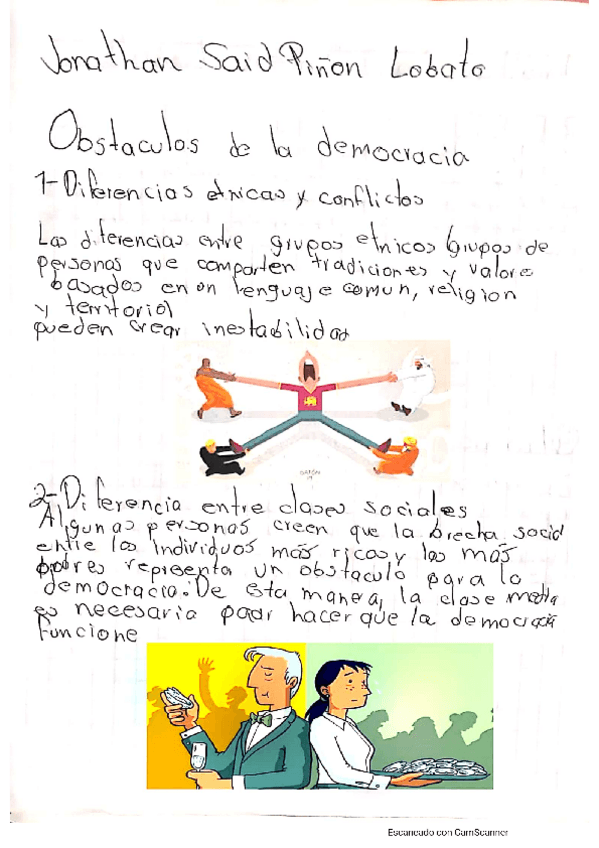 Jonathan Said Piñon Lobato
Obstaculos de la democracia
1-Diferencias etnicas y conflictos
Las diferencias entre grupos etnicos (grupos de
personas que comparten tradiciones y valores
basados en un lenguaje comun, religion
y territorio)
pueden crear inestabilidad
2-Diferencia entre clases sociales
Algunas personas creen que la brecha social
entre los individuos más ricos y los más
pobres representa un obstaculo para la
democracia. De esta manera, la clase media
es necesaria paar hacer que la democracia
funcione
Escaneado con CamScanner